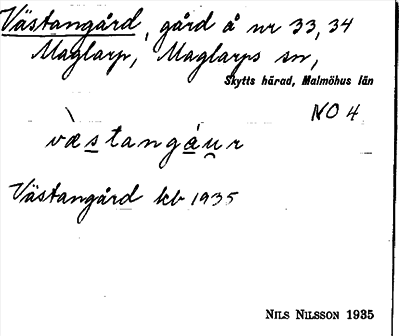 Västangård, gård å nr 33, 34
Maglarp, Maglarps sn,
Skytts härad, Malmöhus län
NO 4
væ̀stangáu̯r
Västangård kb 1935
NILS NILSSON 1935